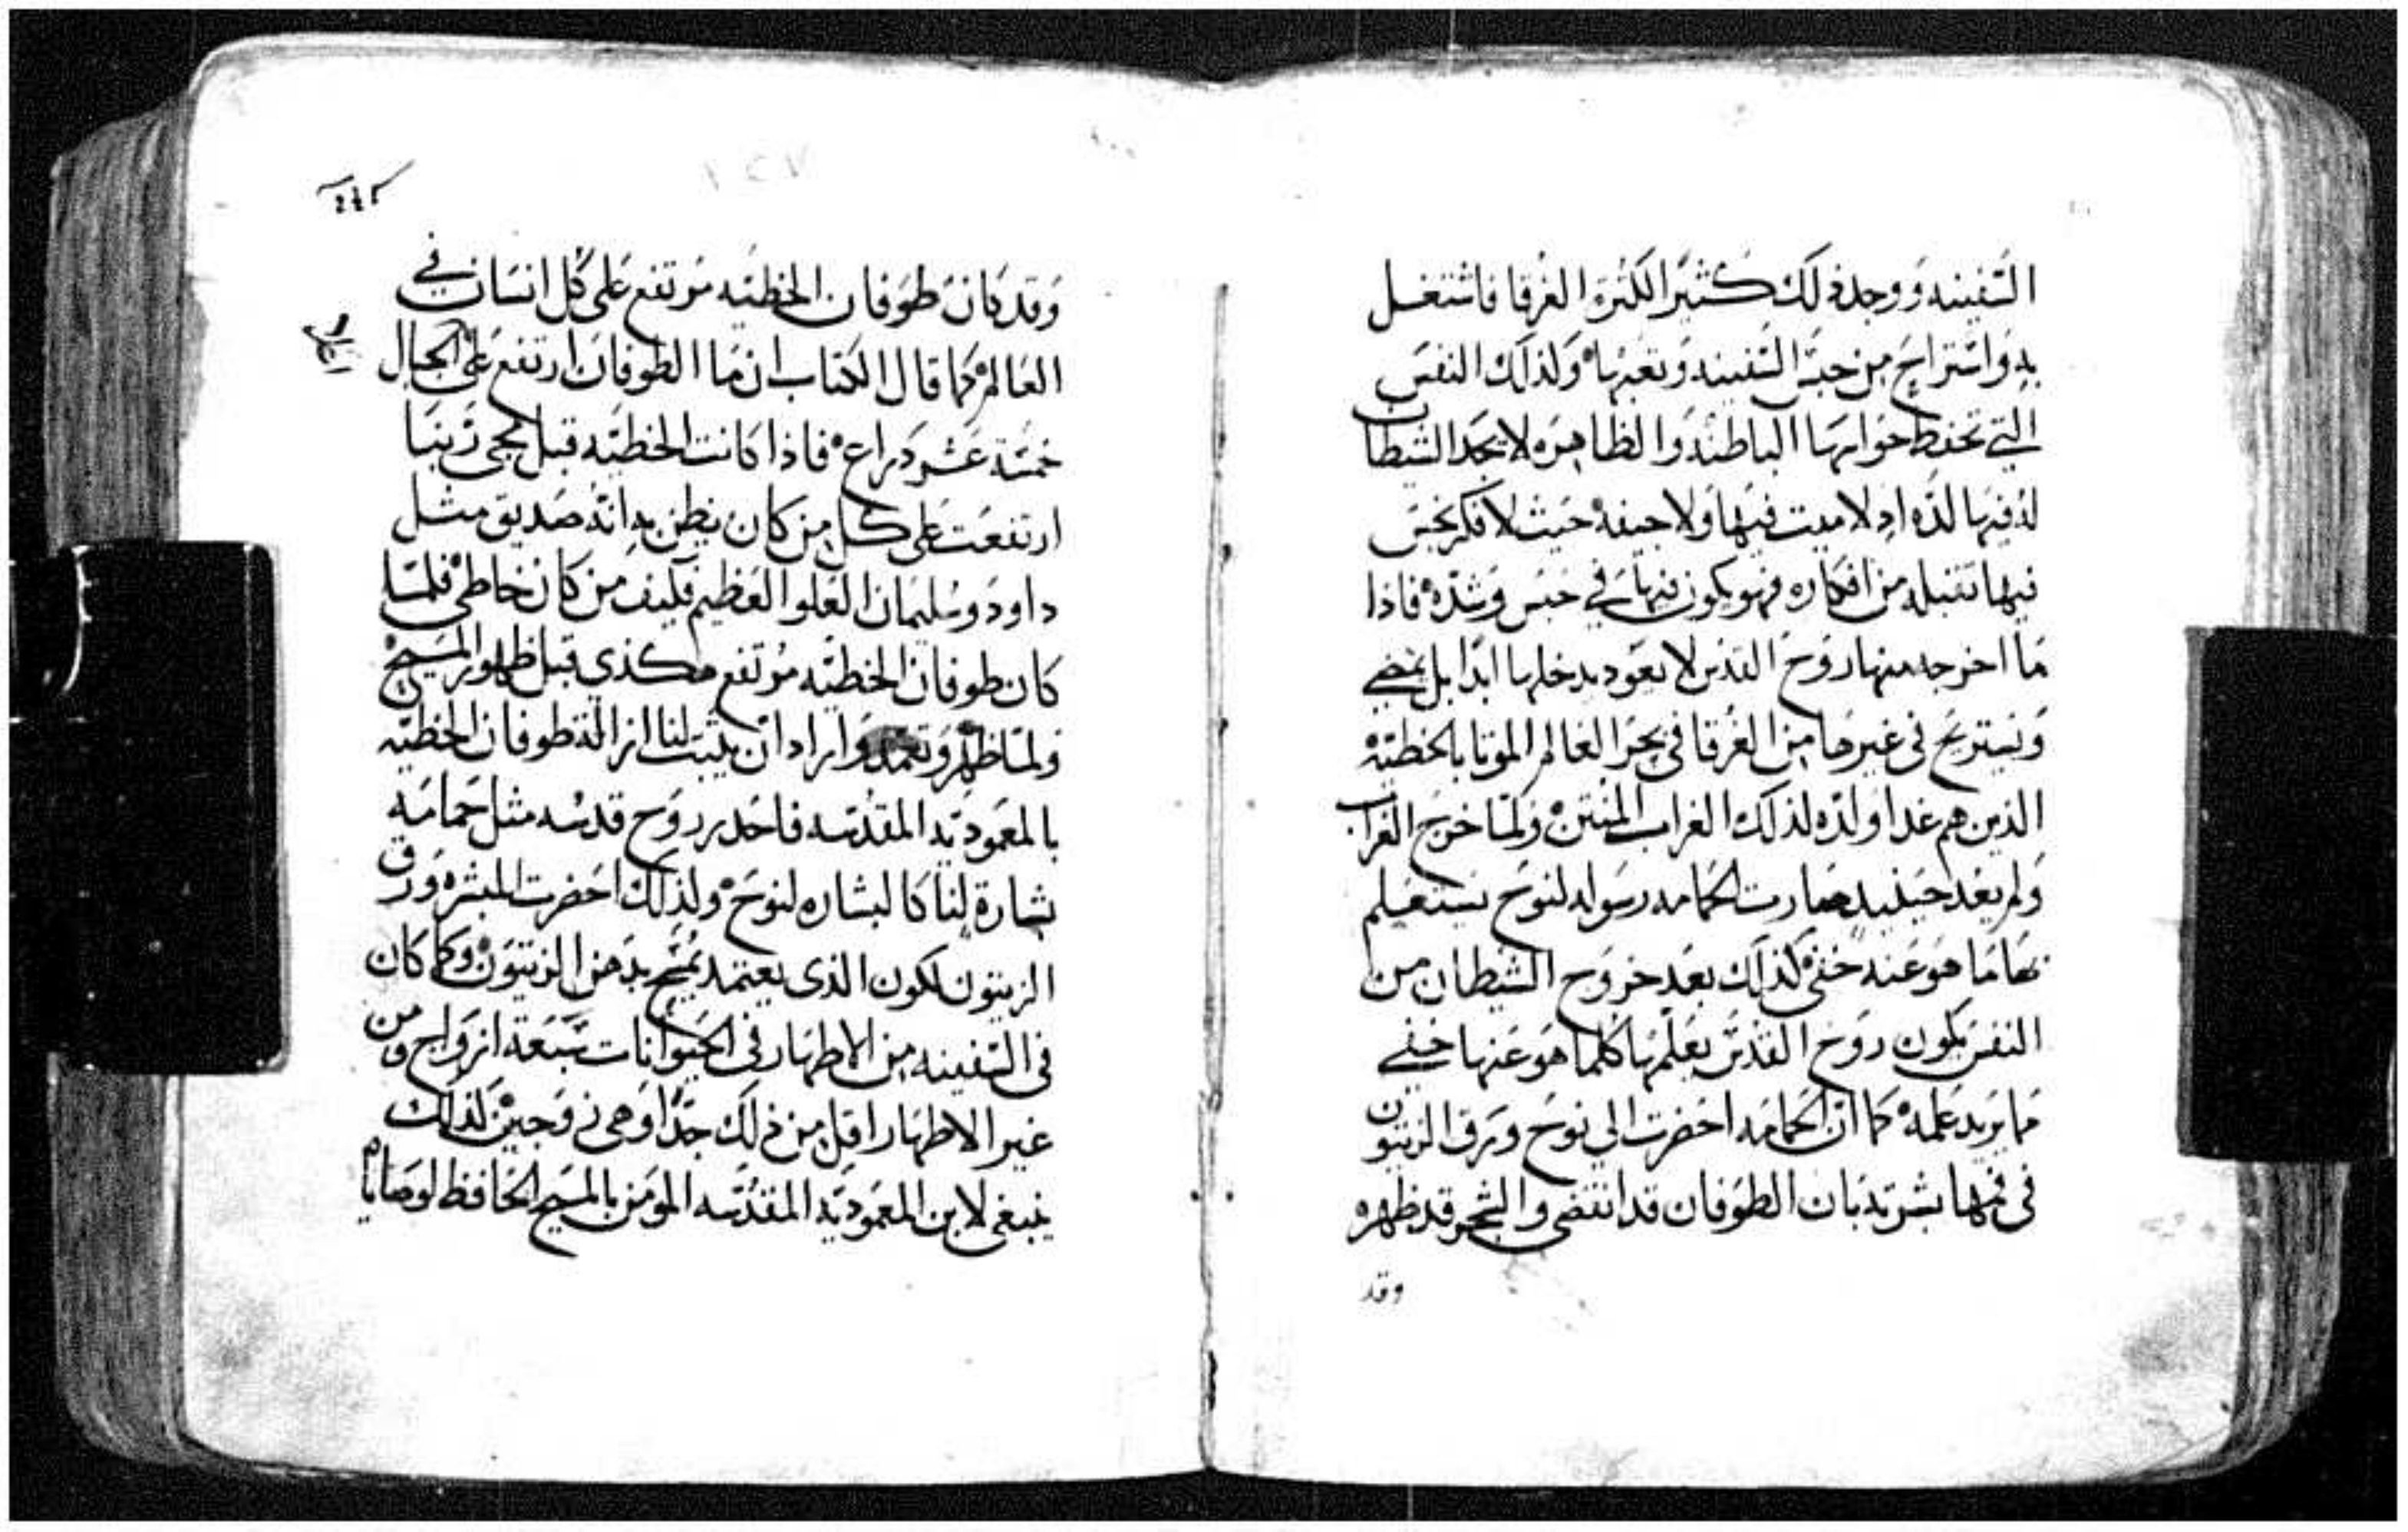 السفينه ووجد ذلك كثيرا لكثرة الغرقا فاشتغل
به واستراح من حبس السفينه وتعبها ولذلك النفس
التي تحفظ حواسها الباطنه والظاهره لا يجد الشيطان
له فيها لذه اذ لا ميت فيها ولا جيفه حيث لا فكر نجس
فيها تقبله من افكاره فهو يكون فيها في حبس وشده فاذا
ما اخرجه منها روح القدس لا يعود يدخلها ابدا بل يمضي
ويستريح في غيرها من الغرقا في بحر العالم الموتا بالخطيه
الذين هم غدا ولذه لذلك الغراب المنتن ولما خرج الغراب
ولم يعد حينيد صارت الحمامه رسوله لنوح يستعلم
بها ما هو عنه خفي كذلك بعد خروج الشيطان من
النفس يكون روح القدس يعلمها كلما هو عنها خفي
مما يريد علمه كما ان الحمامه احضرت الي نوح ورق الزيتون
في فمها بشرته بان الطوفان قد انقضى والشجر قد ظهره
وقد
وقد كان طوفان الخطيه مرتفع على كل انسان في
العالم كما قال الكتاب ان ما الطوفان ارتفع على الجبال
خمسة عشر دراع فاذا كانت الخطيه قبل مجي ربنا
ارتفعت على كل من كان يظن به انه صديق مثل
داود وسليمان العلو العظيم فكيف من كان خاطي فلما
كان طوفان الخطيه مرتفع هكذي قبل ظهور المسيح
ولما ظهر وتعمد واراد ان يثبت لنا ازالة طوفان الخطيه
بالمعموديه المقدسه فاحدر روح قدسه مثل حمامه
بشارة لنا كالبشاره لنوح ولذلك احضرت المبشره ورق
الزيتون لكون الذى يعتمد يمسح بدهن الزيتون وكما كان
في السفينه من الاطهار في الحيوانات سبعة ازواج ومن
غير الاطهار اقل من ذلك جدا وهى زوجين كذلك
ينبغى لابن المعموديه المقدسه المومن بالمسيح الحافظ لوصاياه